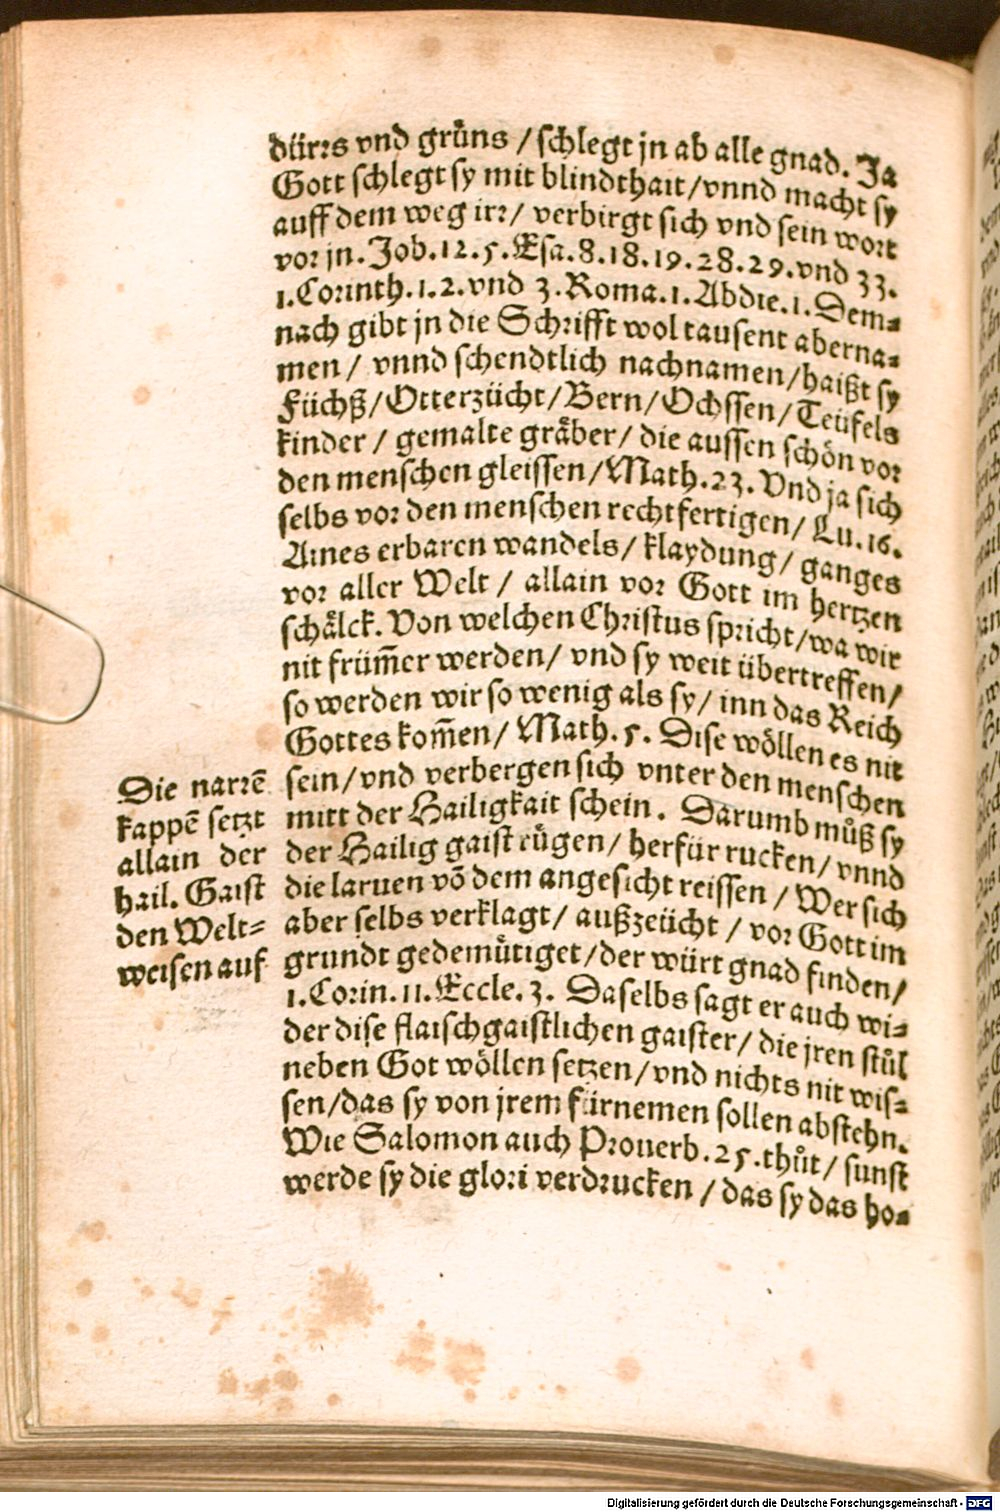 dürrs vnd grüns / schlegt jn ab alle gnad. Ja
Gott schlegt sy mit blindthait / vnnd macht sy
auff dem weg irr / verbirgt sich vnd sein wort
vor jn. Job. 12. 5. Esa. 8. 18. 19. 28. 29. vnd 33.
1. Corinth. 1. 2. vnd 3. Roma. 1. Abdie. 1. Dem-
nach gibt jn die Schrifft wol tausent aberna-
men / vnnd schendtlich nachnamen / haißt sy
Füchß / Otterzücht / Bern / Ochssen / Teüfels
kinder / gemalte gråber / die aussen schön vor
den menschen gleissen / Math. 23. Vnd ja sich
selbs vor den menschen rechtfertigen / Lu. 16.
Aines erbaren wandels / klaydung / ganges
vor aller Welt / allain vor Gott im hertzen
schålck. Von welchen Christus spricht / wa wir
nit frümer̄ werden / vnd sy weit übertreffen /
so werden wir so wenig als sy / inn das Reich
Gottes kom̄en / Math. 5. Dise wöllen es nit
sein / vnd verbergen sich vnter den menschen
mitt der Hailigkait schein. Darumb můß sy
der Hailig gaist rügen / herfür rucken / vnnd
die laruen vō dem angesicht reissen / Wer sich
aber selbs verklagt / außzeücht / vor Gott im
grundt gedemütiget / der würt gnad finden /
1. Corin. 11. Eccle. 3. Daselbs sagt er auch wi-
der dise flaischgaistlichen gaister / die jren stůl
neben Got wöllen setzen / vnd nichts nit wis-
sen / das sy von jrem fürnemen sollen abstehn.
Wie Salomon auch Prouerb. 25. thůt / sunst
werde sy die glori verdrucken / das sy das ho-
Die narrē
kappē setzt
allain der
hail. Gaist
den Welt-
weisen auf
Digitalisierung gefördert durch die Deutsche Forschungsgemeinschaft - DFG